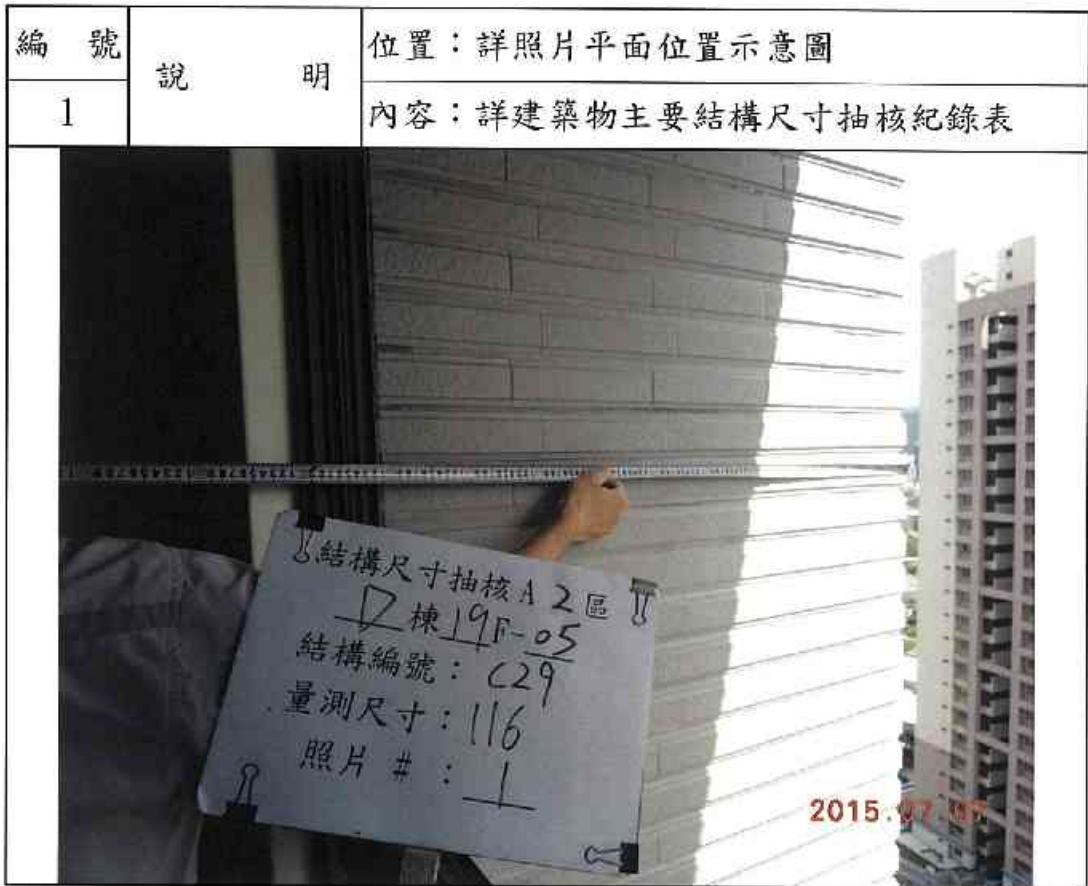 編 號
1
說 明
位置：詳照片平面位置示意圖
內容：詳建築物主要結構尺寸抽核紀錄表
結構尺寸抽核A 2區
D棟19F-05
結構編號：C29
量測尺寸：116
照片 #：1
2015.07.07